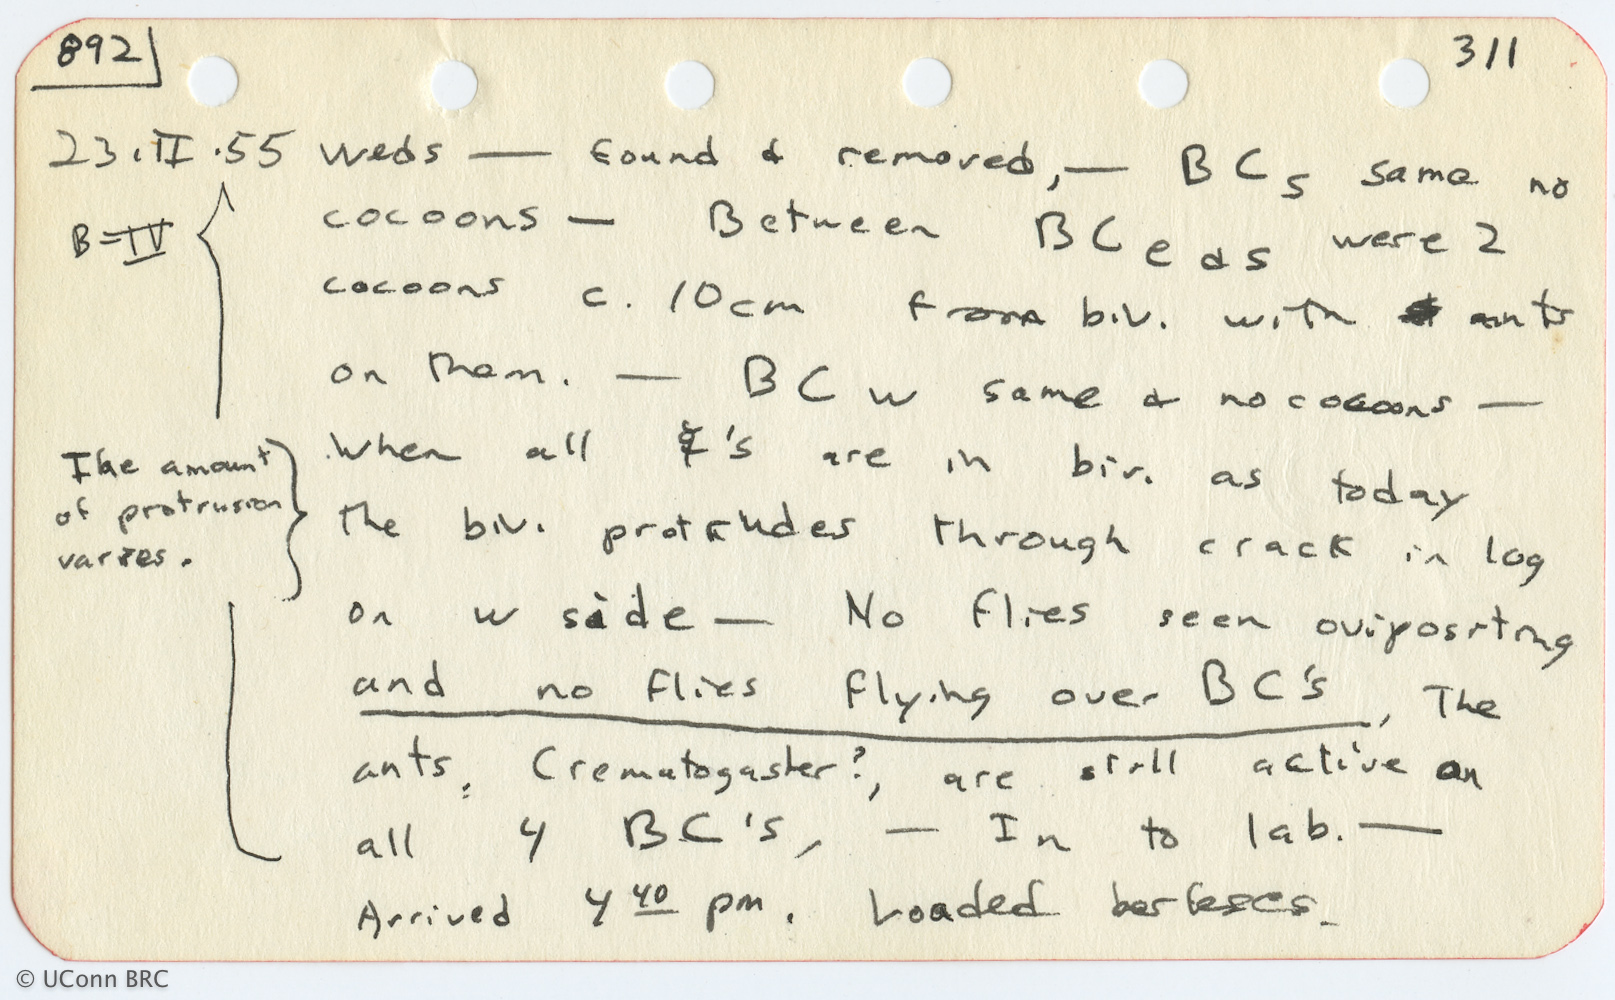 892
311
23.II.55 Weds — found & removed, — BCs same no
B=IV
cocoons — Between BC e & s were 2
cocoons c. 10cm from biv. with ants
on them. — BC w same & no cocoons —
When all ☿'s are in biv. as today
The amount
of protrusion
varies.
the biv. protrudes through crack in log
on w side — No flies seen ovipositing
and no flies flying over BC's, The
ants, Crematogaster?, are still active on
all 4 BC's, — In to lab. —
Arrived 4 40 pm. Loaded berleses.
© UConn BRC